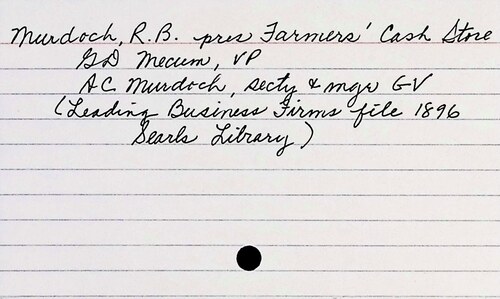 Murdoch, R.B. pres Farmers' Cash Store
GD Mecum, VP
AC Murdoch, secty & mgr GV
(Leading Business Firms file 1896
Searls Library)